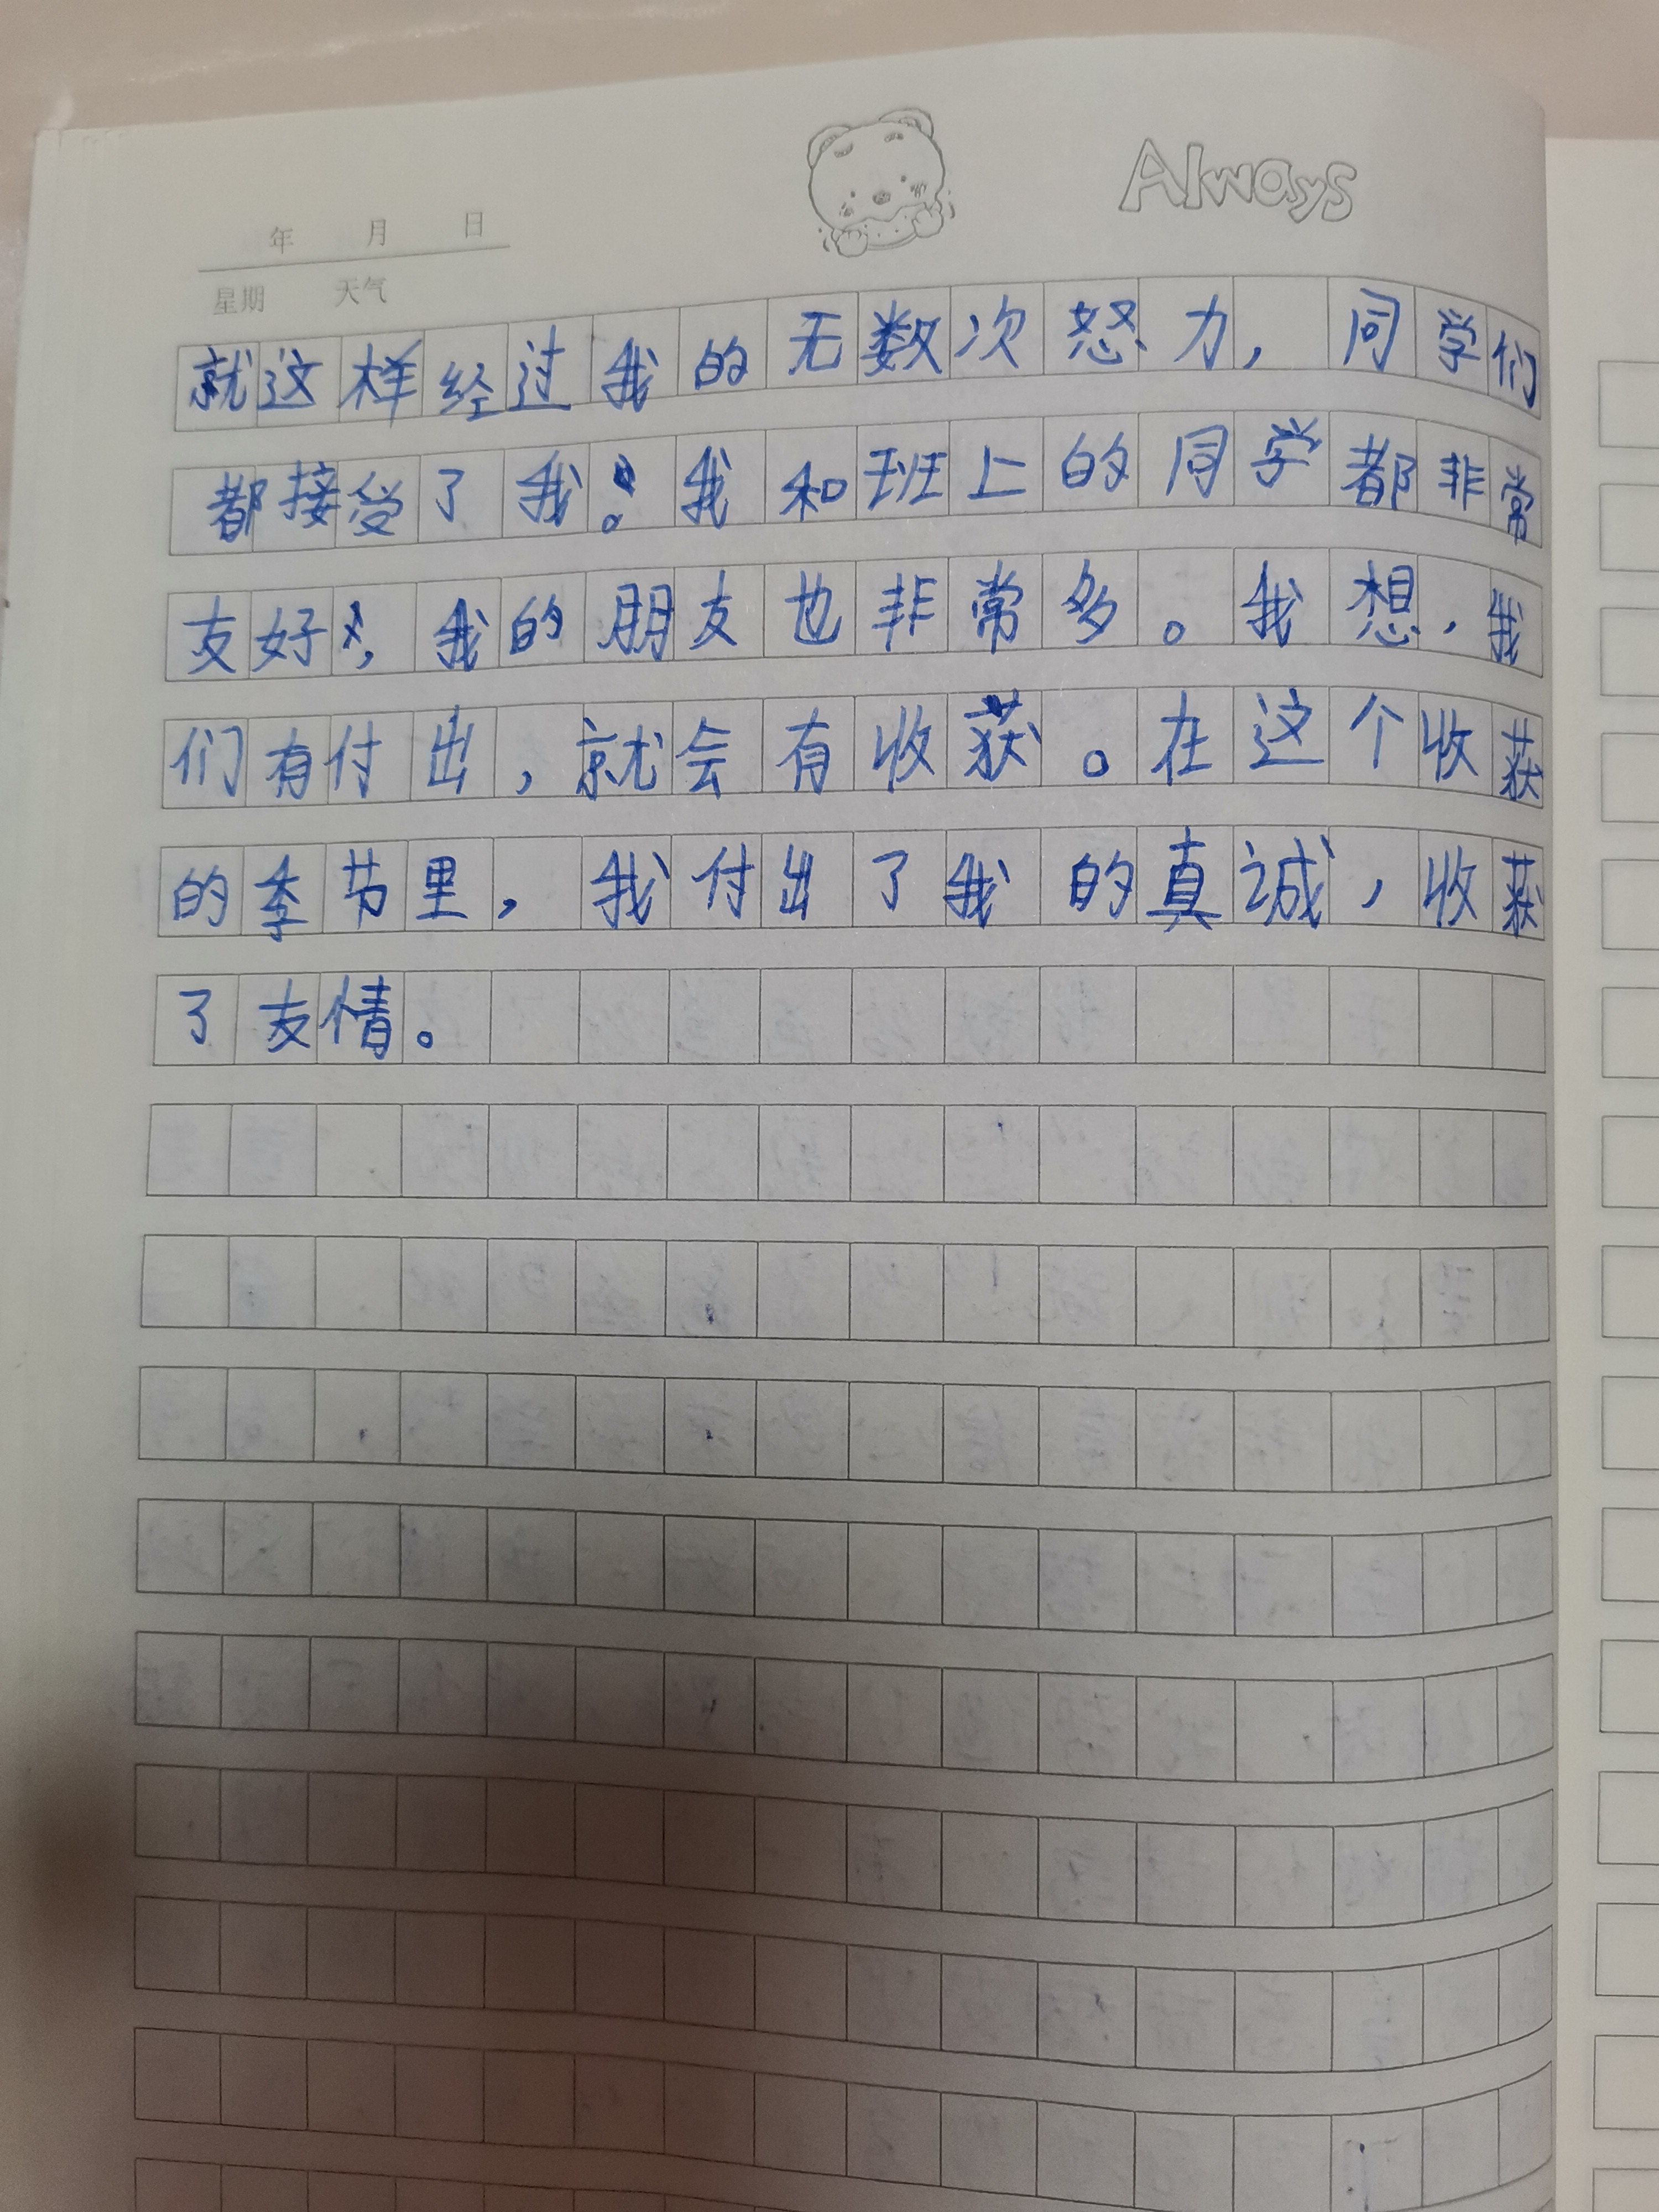 Always
年 月 日
星期 天气
就这样经过我的无数次怒力，同学们
都接受了我。我和班上的同学都非常
友好，我的朋友也非常多。我想，我
们有付出，就会有收获。在这个收获
的季节里，我付出了我的真诚，收获
了友情。